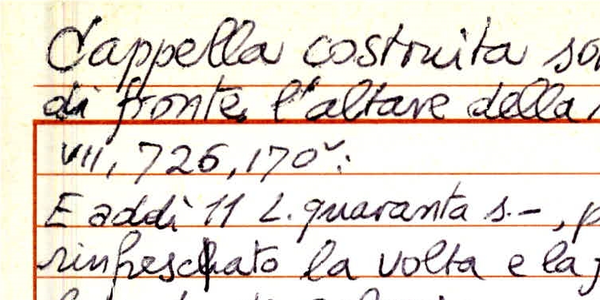 Cappella costruita
di fronte l'altare della
VII, 726, 170v:
E addì 11 L. quaranta s.-,
rinfreschato la volta e la